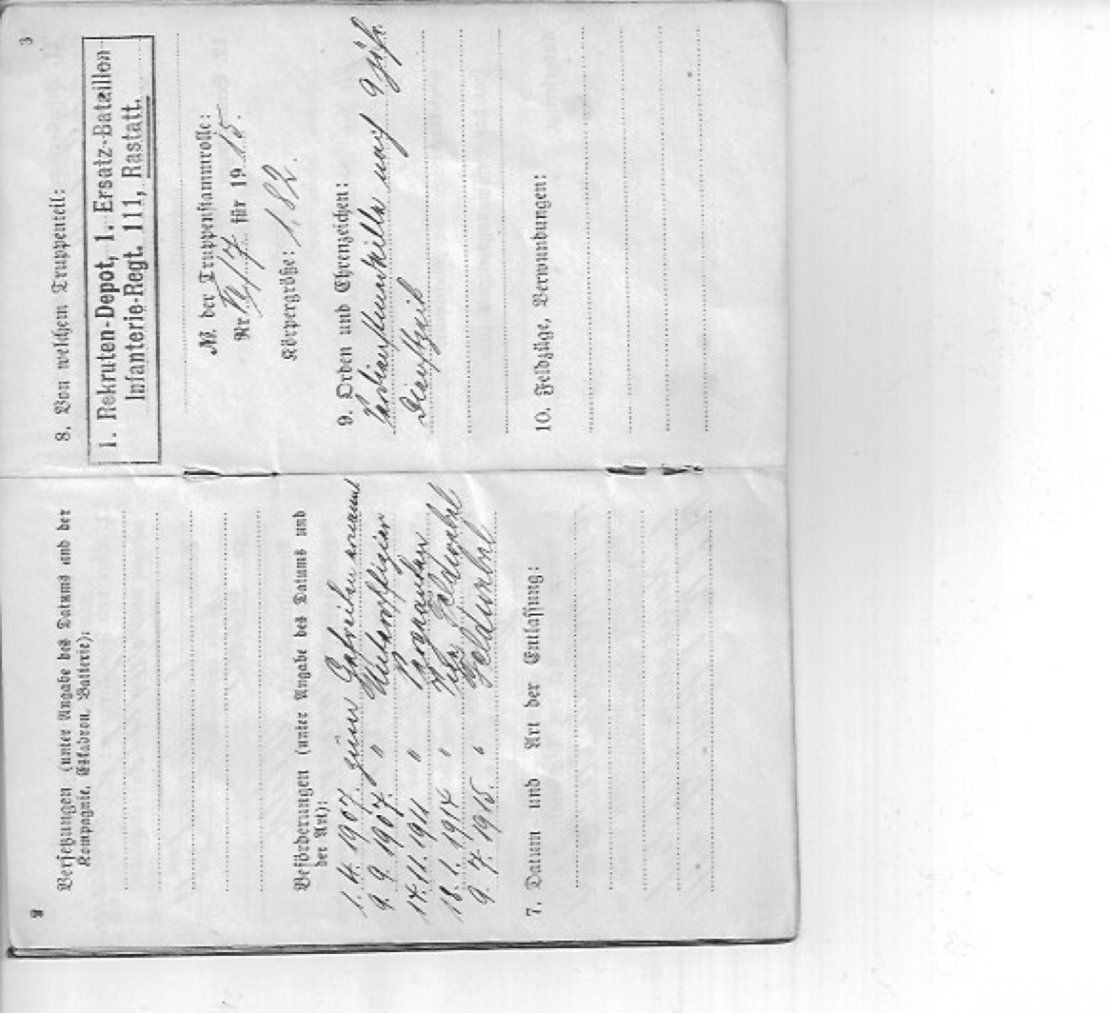 2
Versetzungen (unter Angabe des Datums und der
Kompagnie, Eskadron, Batterie):
Beförderungen (unter Angabe des Datums und
der Art):
1. 4. 1907. zum Gefreiten ernannt
9. 9. 1907. " Unteroffizier
17. 11. 1911 " Sergeanten
18. 1. 1914 " Feldwebel
9. 7. 1915. " Feldwebel
7. Datum und Art der Entlassung:
3
8. Von welchem Truppenteil:
1. Rekruten-Depot, 1. Ersatz-Bataillon
Infanterie-Regt. 111, Rastatt.
№. der Truppenstammrolle:
Nr. für 1915.
Körpergröße: 1,82.
9. Orden und Ehrenzeichen:
nach 9 jähr.
Dienstzeit
10. Feldzüge, Verwundungen: